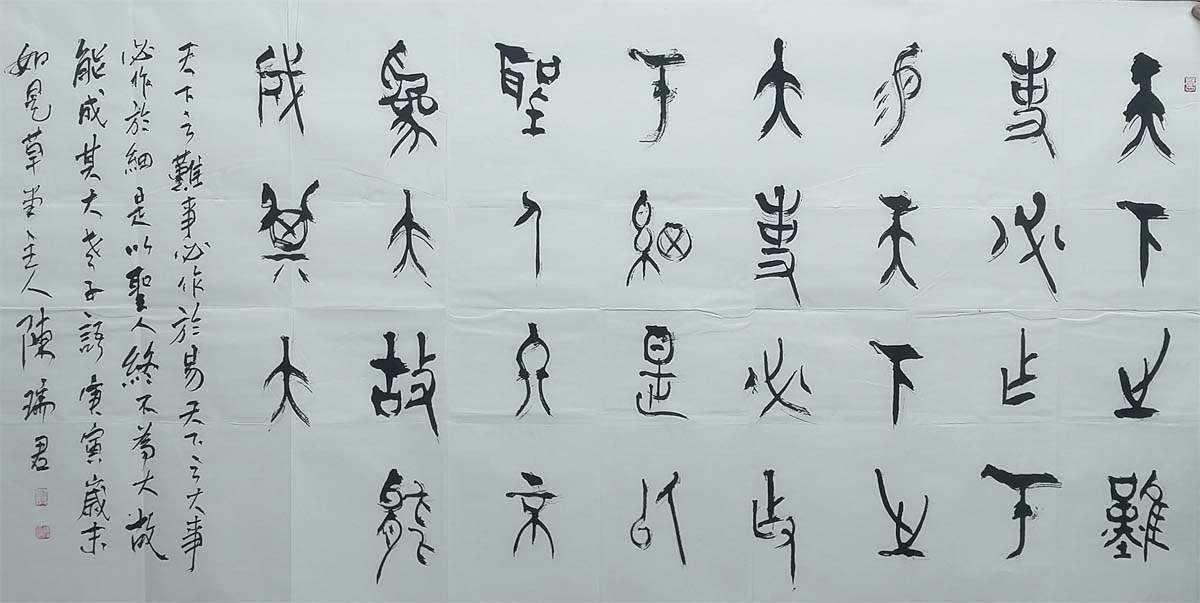 天下之難
事必作于
易天下之
大事必作
于細是以
聖人終不
為大故能
成其大
天下之難事必作於易天下之大事
必作於細是以聖人終不為大故
能成其大老子語庚寅歲末
如是草堂主人陳瑞君